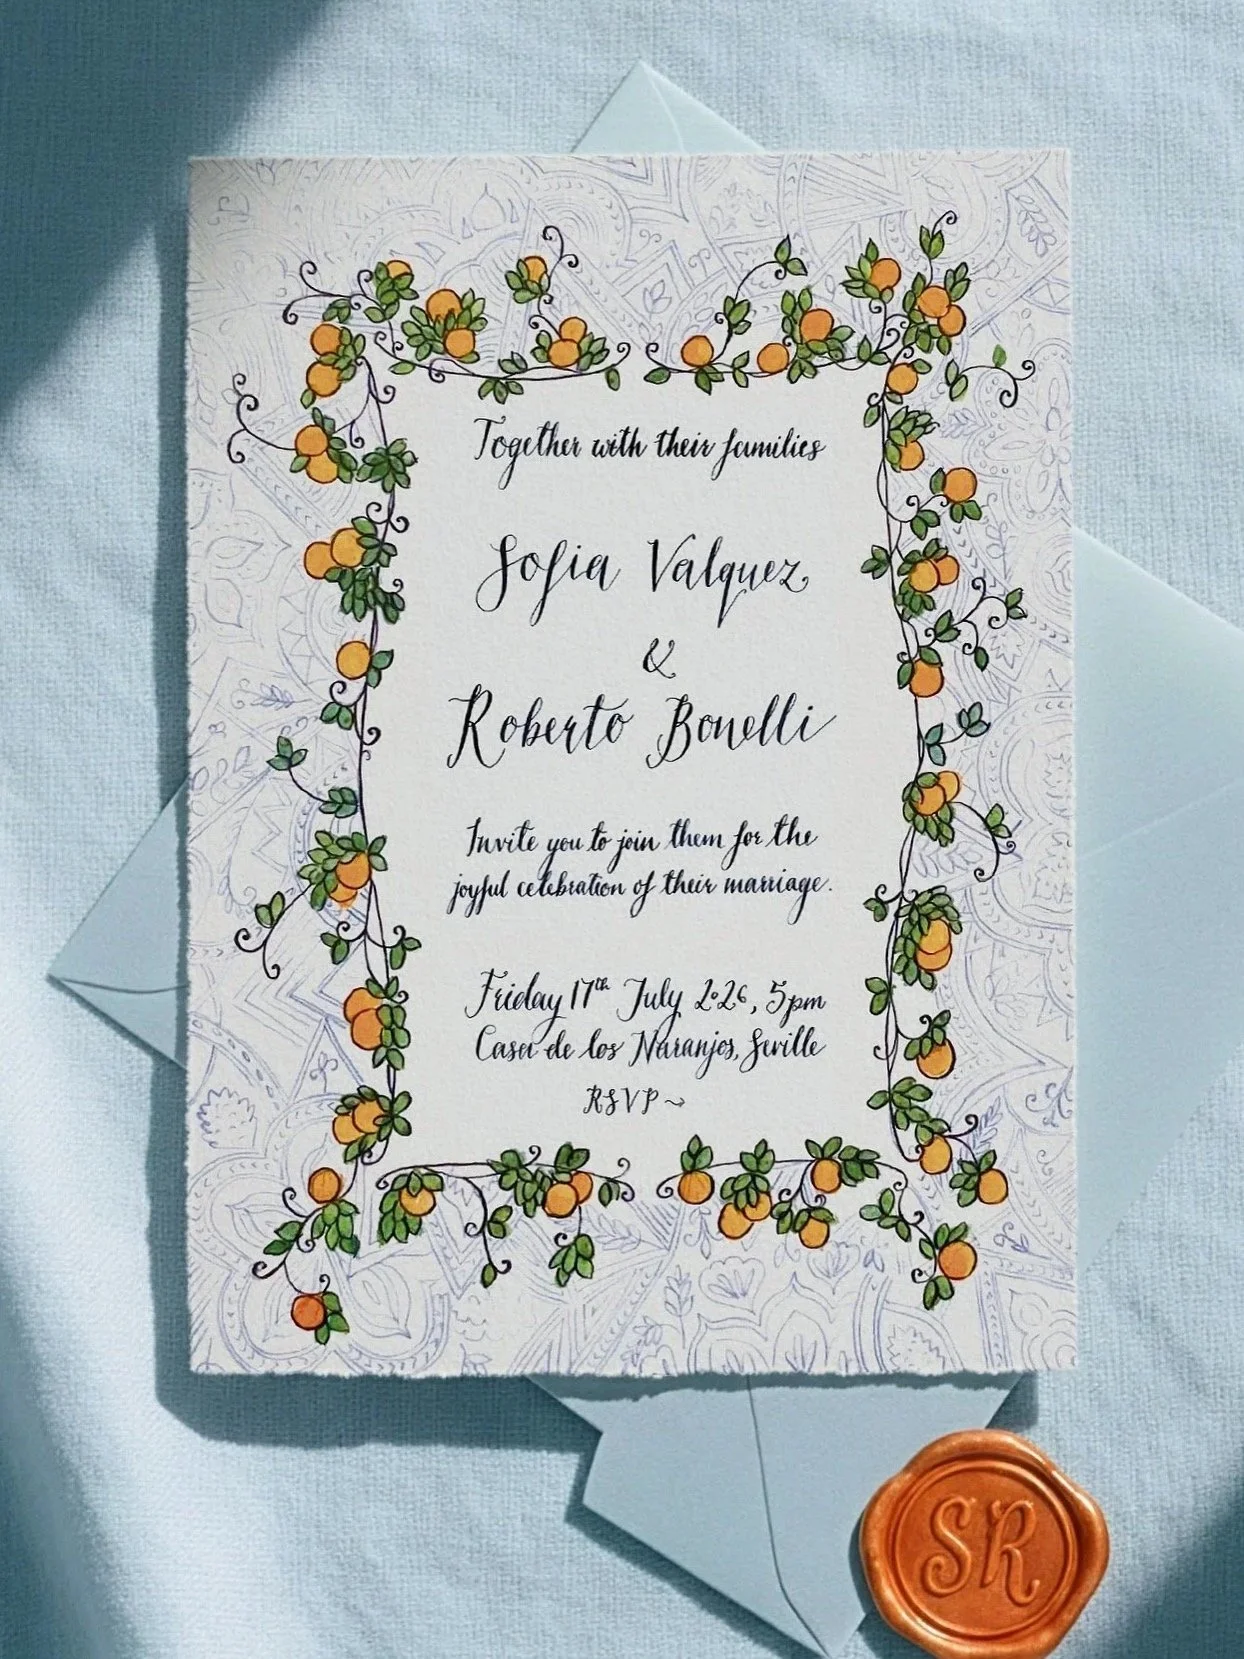 Together with their families
Sofia Valquez
&
Roberto Bonelli
Invite you to join them for the
joyful celebration of their marriage.
Friday 17th July 2026, 5pm
Casa de los Naranjos, Seville
RSVP →
SR